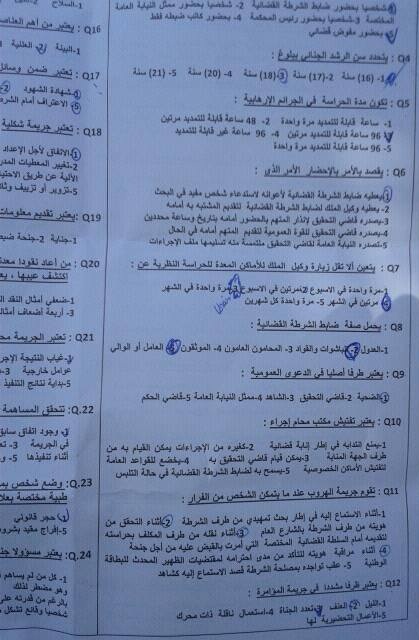 1-شخصيا بحضور ضابط الشرطة القضائية 2- شخصيا بحضور ممثل النيابة العامة
المختصة 3-شخصيا بحضور رئيس المحكمة 4- بحضور كاتب ضبطه فقط
5- بحضور مفوض قضائي
Q4 : يتحدد سن الرشد الجنائي ببلوغ :
1- (16) سنة 2-(17) سنة 3-(18) سنة 4- (20) سنة 5- (21) سنة
Q5 : تكون مدة الحراسة في الجرائم الإرهابية :
1- ساعة قابلة للتمديد مرة واحدة 2- 48 ساعة قابلة للتمديد مرتين
96 ساعة قابلة للتمديد مرتين 4- 96 ساعة غير قابلة للتمديد
5- 96 ساعة قابلة للتمديد مرة واحدة
Q6 : يقصد بالأمر بالإحضار الأمر الذي :
1-يعطيه ضابط الشرطة القضائية لأعوانه لاستدعاء شخص مفيد في البحث
2-يعطيه وكيل الملك لضابط الشرطة القضائية لتقديم المشتبه به أمامه
3-يصدره قاضي التحقيق لإنذار المتهم بالحضور أمامه بتاريخ وساعة محددين
4-يصدره قاضي التحقيق للقوة العمومية لتقديم المتهم أمامه في الحال
5-تصدره النيابة العامة لقاضي التحقيق ملتمسة منه تسليمها ملف الإجراءات
Q7 : يتعين ألا تقل زيارة وكيل الملك للأماكن المعدة للحراسة النظرية عن :
1-مرة واحدة في الاسبوع 2-مرتين في الاسبوع 3-مرة واحدة في الشهر
4- مرتين في الشهر 5- مرة واحدة كل شهرين
Q8 : يحمل صفة ضابط الشرطة القضائية :
1-العدول 2-الباشوات والقواد 3- المحامون العامون 4- الموثقون 5- العامل أو الوالي
Q9 : يعتبر طرفا أصليا في الدعوى العمومية :
1-الضحية 2-قاضي التحقيق 3-الشاهد 4-ممثل النيابة العامة 5-قاضي الحكم
Q10 : يعتبر تفتيش مكتب محام إجراء :
1-يمنع انتدابه في إطار إنابة قضائية 2-كغيره من الإجراءات يمكن القيام به من
طرف الجهة المنابة 3-يمكن قيام قاضي التحقيق به 4-يخضع للقواعد العامة
لتفتيش الأماكن الخصوصية 5-يسمح به لضابط الشرطة القضائية في حالة التلبس
Q11 : تقوم جريمة الهروب عند ما يتمكن الشخص من الفرار :
1-أثناء الاستماع إليه في إطار بحث تمهيدي من طرف الشرطة 2-أثناء التحقق من
هويته من طرف الشرطة بالشارع العام 3-أثناء نقله من طرف المكلف بحراسته
لتقديمه أمام السلطة القضائية المختصة التي أمرت بالقبض عليه من أجل جنحة
4- أثناء مراقبة هويته للتأكد من مدى احترامه لمقتضيات الظهير المحدث للبطاقة
الوطنية 5- عقب تواجده بمصلحة الشرطة قصد الاستماع إليه كشاهد
Q12 : يعتبر ظرفا مشددا في جريمة المؤامرة :
1-الليل 2- العنف 3-تعدد الجناة 4-استعمال ناقلة ذات محرك
5-الأعمال التحضيرية لها
1-السلاح
Q16 : يعتبر من أهم العناصر
1- البينة 2- العلنية
Q17 : تعتبر ضمن وسائل
1-شهادة الشهود 2-
5- الاعتراف أمام الشرطة
Q18 : تعتبر جريمة شكلية
1-الاتفاق لأجل الإعداد
2-تغيير المعطيات المدر
الآلية عن طريق الاحتيال
5-تزوير أو تزييف وثا
Q19 : يعتبر تقديم معلومات
1-جناية 2-جنحة ضبط
Q20 : من أعاد نقودا معدنية
اكتشف عيبها ، يع
1-ضعفي أمثال النقد
3- أربعة أضعاف أمثال
Q21 : تعتبر الجريمة مح
1- غياب النتيجة الإجر
عوامل خارجية 3-
5-بداية نتائج التنفيذ
Q22. تتحقق المساهمة
1- وجود اتفاق سابق
في الجريمة 3- تع
أثناء تنفيذها 5- وق
Q.23 : وضع شخص بمؤ
طبية مختصة بعلا
1- حجر قانوني
5-إفراج مقيد بشروط
Q.24 : يعتبر مسؤولا جنا
1- كل من لم يساهم
وهو مضطر لذلك
بالرغم من قدرته على
شخصيا وقانع تشكل